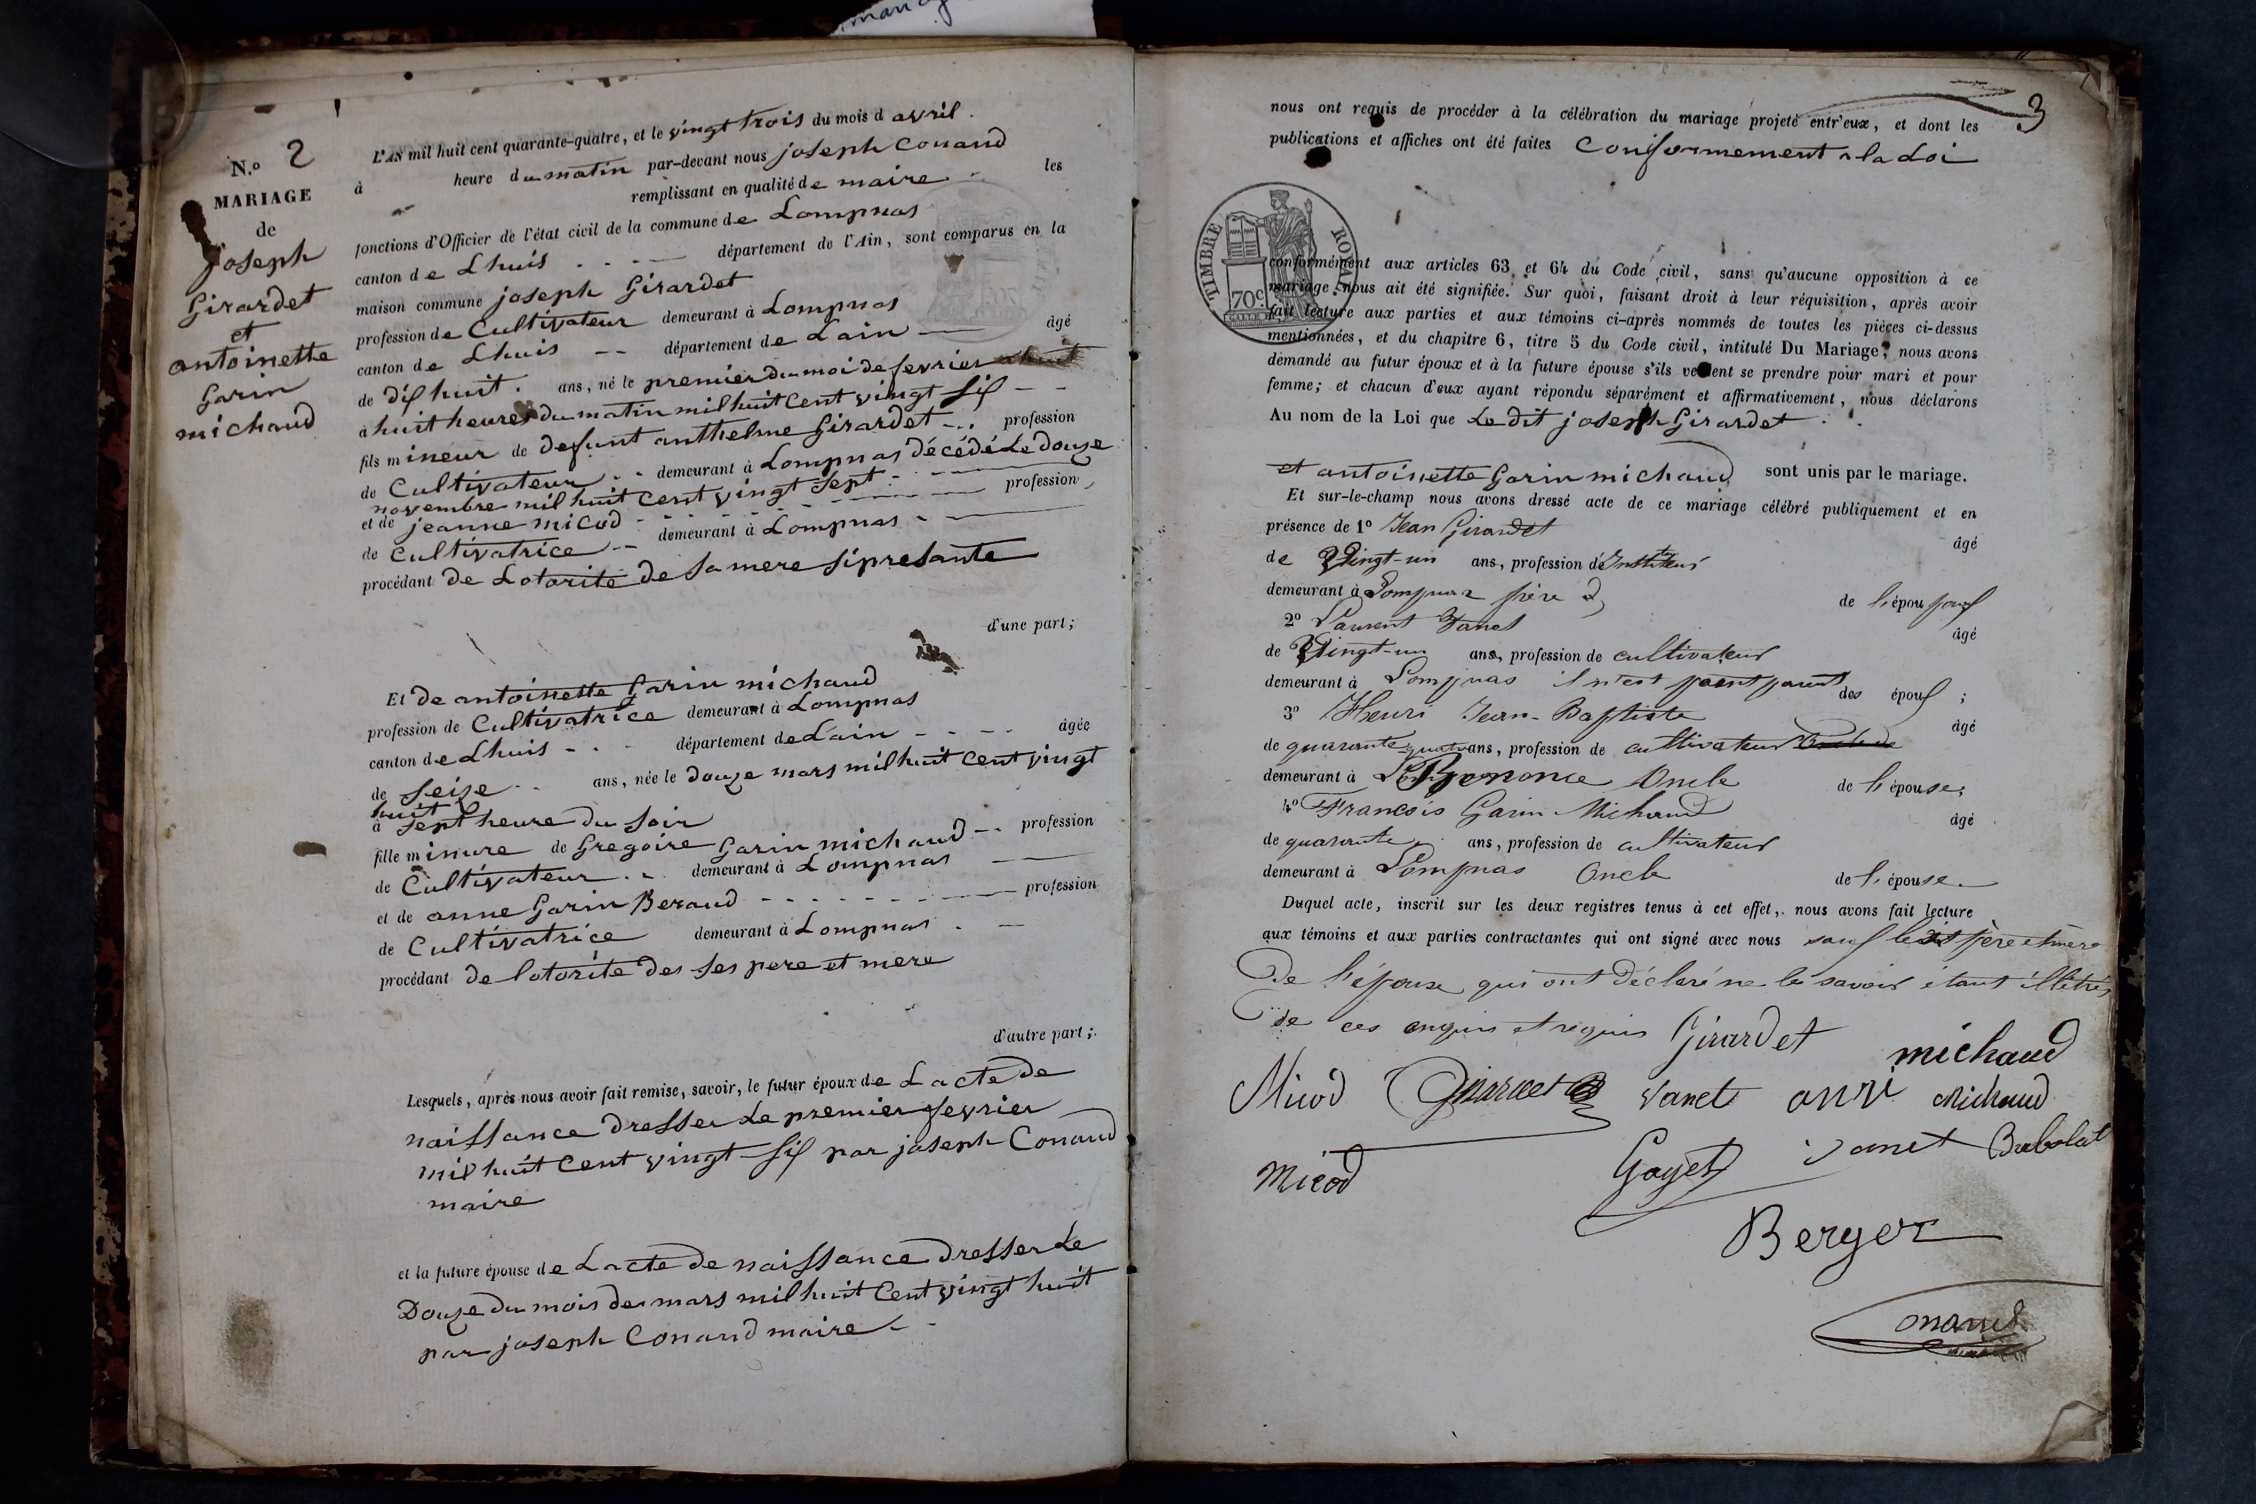 mariage
N.o 2
MARIAGE
de
joseph
Girardet
et
antoinette
Garin
michaud
L'AN mil huit cent quarante-quatre, et le vingt trois du mois d avril.
à heure du matin par-devant nous joseph Conand
remplissant en qualité de maire les
fonctions d'Officier de l'état civil de la commune de Lompnas
canton de Lhuis département de l'Ain, sont comparus en la
maison commune joseph Girardet
profession de Cultivateur demeurant à Lompnas
canton de Lhuis -- département de Lain âgé
de dix huit. ans, né le premier du moi de fevrier
a huit heures du matin mil huit cent vingt six --
fils mineur de defunt anthelme Girardet -.. profession
de Cultivateur demeurant à Lompnas décédé Le douze
novembre mil huit cent vingt sept
et de jeanne micod profession
de Cultivatrice -- demeurant à Lompnas
procédant de Lotorité de Sa mere si presante
d'une part;
Et de antoinette Garin michaud
profession de Cultivatrice demeurant à Lompnas
canton de Lhuis département de Lain âgée
de seize ans, née le douze mars mil huit cent vingt
huit
à sept heure du soir
fille minure de Gregoire Garin michaud -- profession
de Cultivateur demeurant à Lompnas
et de anne Garin Beraud profession
de Cultivatrice demeurant à Lompnas
procédant de lotorité des ses pere et mere
d'autre part;
Lesquels, après nous avoir fait remise, savoir, le futur époux de Lacte de
naissance dresser Le premier fevrier
mil huit cent vingt six par joseph Conand
maire
et la future épouse de Lacte de naissance dresser Le
Douze du mois de mars mil huit cent vingt huit
par joseph Conand maire
3
nous ont requis de procéder à la célébration du mariage projeté entr'eux, et dont les
publications et affiches ont été faites Conformement a la Loi
TIMBRE ROYAL
70 c.
conformément aux articles 63 et 64 du Code civil, sans qu'aucune opposition à ce
mariage nous ait été signifiée. Sur quoi, faisant droit à leur réquisition, après avoir
fait lecture aux parties et aux témoins ci-après nommés de toutes les pièces ci-dessus
mentionnées, et du chapitre 6, titre 5 du Code civil, intitulé Du Mariage, nous avons
demandé au futur époux et à la future épouse s'ils veulent se prendre pour mari et pour
femme; et chacun d'eux ayant répondu séparément et affirmativement, nous déclarons
Au nom de la Loi que Le dit joseph Girardet
et antoinette Garin michaud sont unis par le mariage.
Et sur-le-champ nous avons dressé acte de ce mariage célébré publiquement et en
présence de 1o Jean Girardet âgé
de Vingt-un ans, profession d'Instituteur
demeurant à Lompnas frère de l'époux
2o Laurent Vanet âgé
de Vingt-un ans, profession de cultivateur
demeurant à Lompnas il n'est point parent des époux;
3o Henri Jean-Baptiste âgé
de quarante quatre ans, profession de cultivateur
demeurant à Bénonce Oncle de l'épouse;
4o François Garin Michaud âgé
de quarante ans, profession de cultivateur
demeurant à Lompnas Oncle de l'épouse.
Duquel acte, inscrit sur les deux registres tenus à cet effet, nous avons fait lecture
aux témoins et aux parties contractantes qui ont signé avec nous sauf les père et mère
De l'épouse qui ont déclaré ne le savoir étant illétrés
de ces enquis et requis Girardet michaud
Micod Girardet Vanet anri Michaud
Micod Goyet Vanet Babolat
Berger
Conand